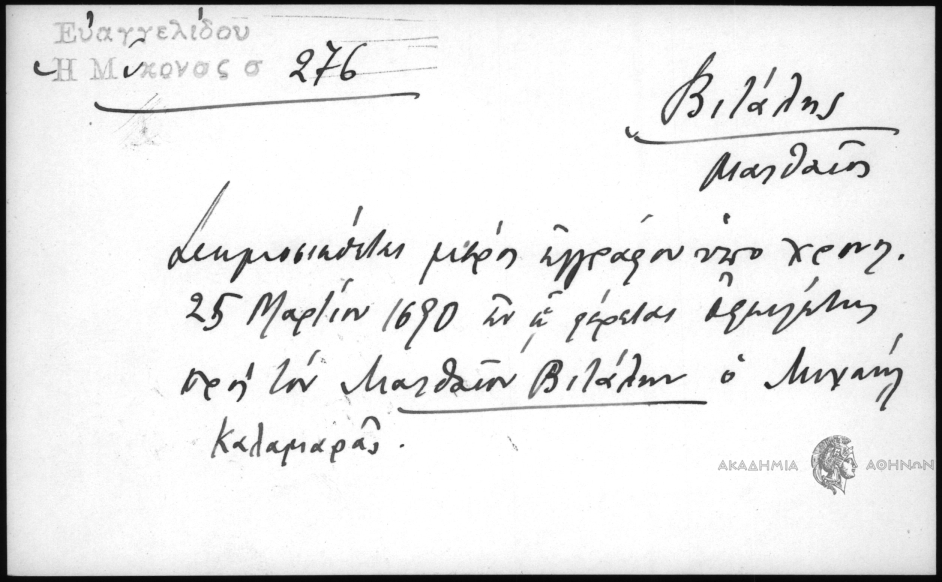 Εὐαγγελίδου
Ἡ Μύκονος σ 276
Βιτάλης
Ματθαῖος
Δημοσιεύεται μέρος ἐγγράφου ὑπὸ χρονολ.
25 Μαρτίου 1690 ἐν ᾧ φέρεται ὀφειλέτης
πρὸς τὸν Ματθαῖον Βιτάλην ὁ Μιχαήλ
Καλαμαρᾶς.
ΑΚΑΔΗΜΙΑ ΑΘΗΝΩΝ